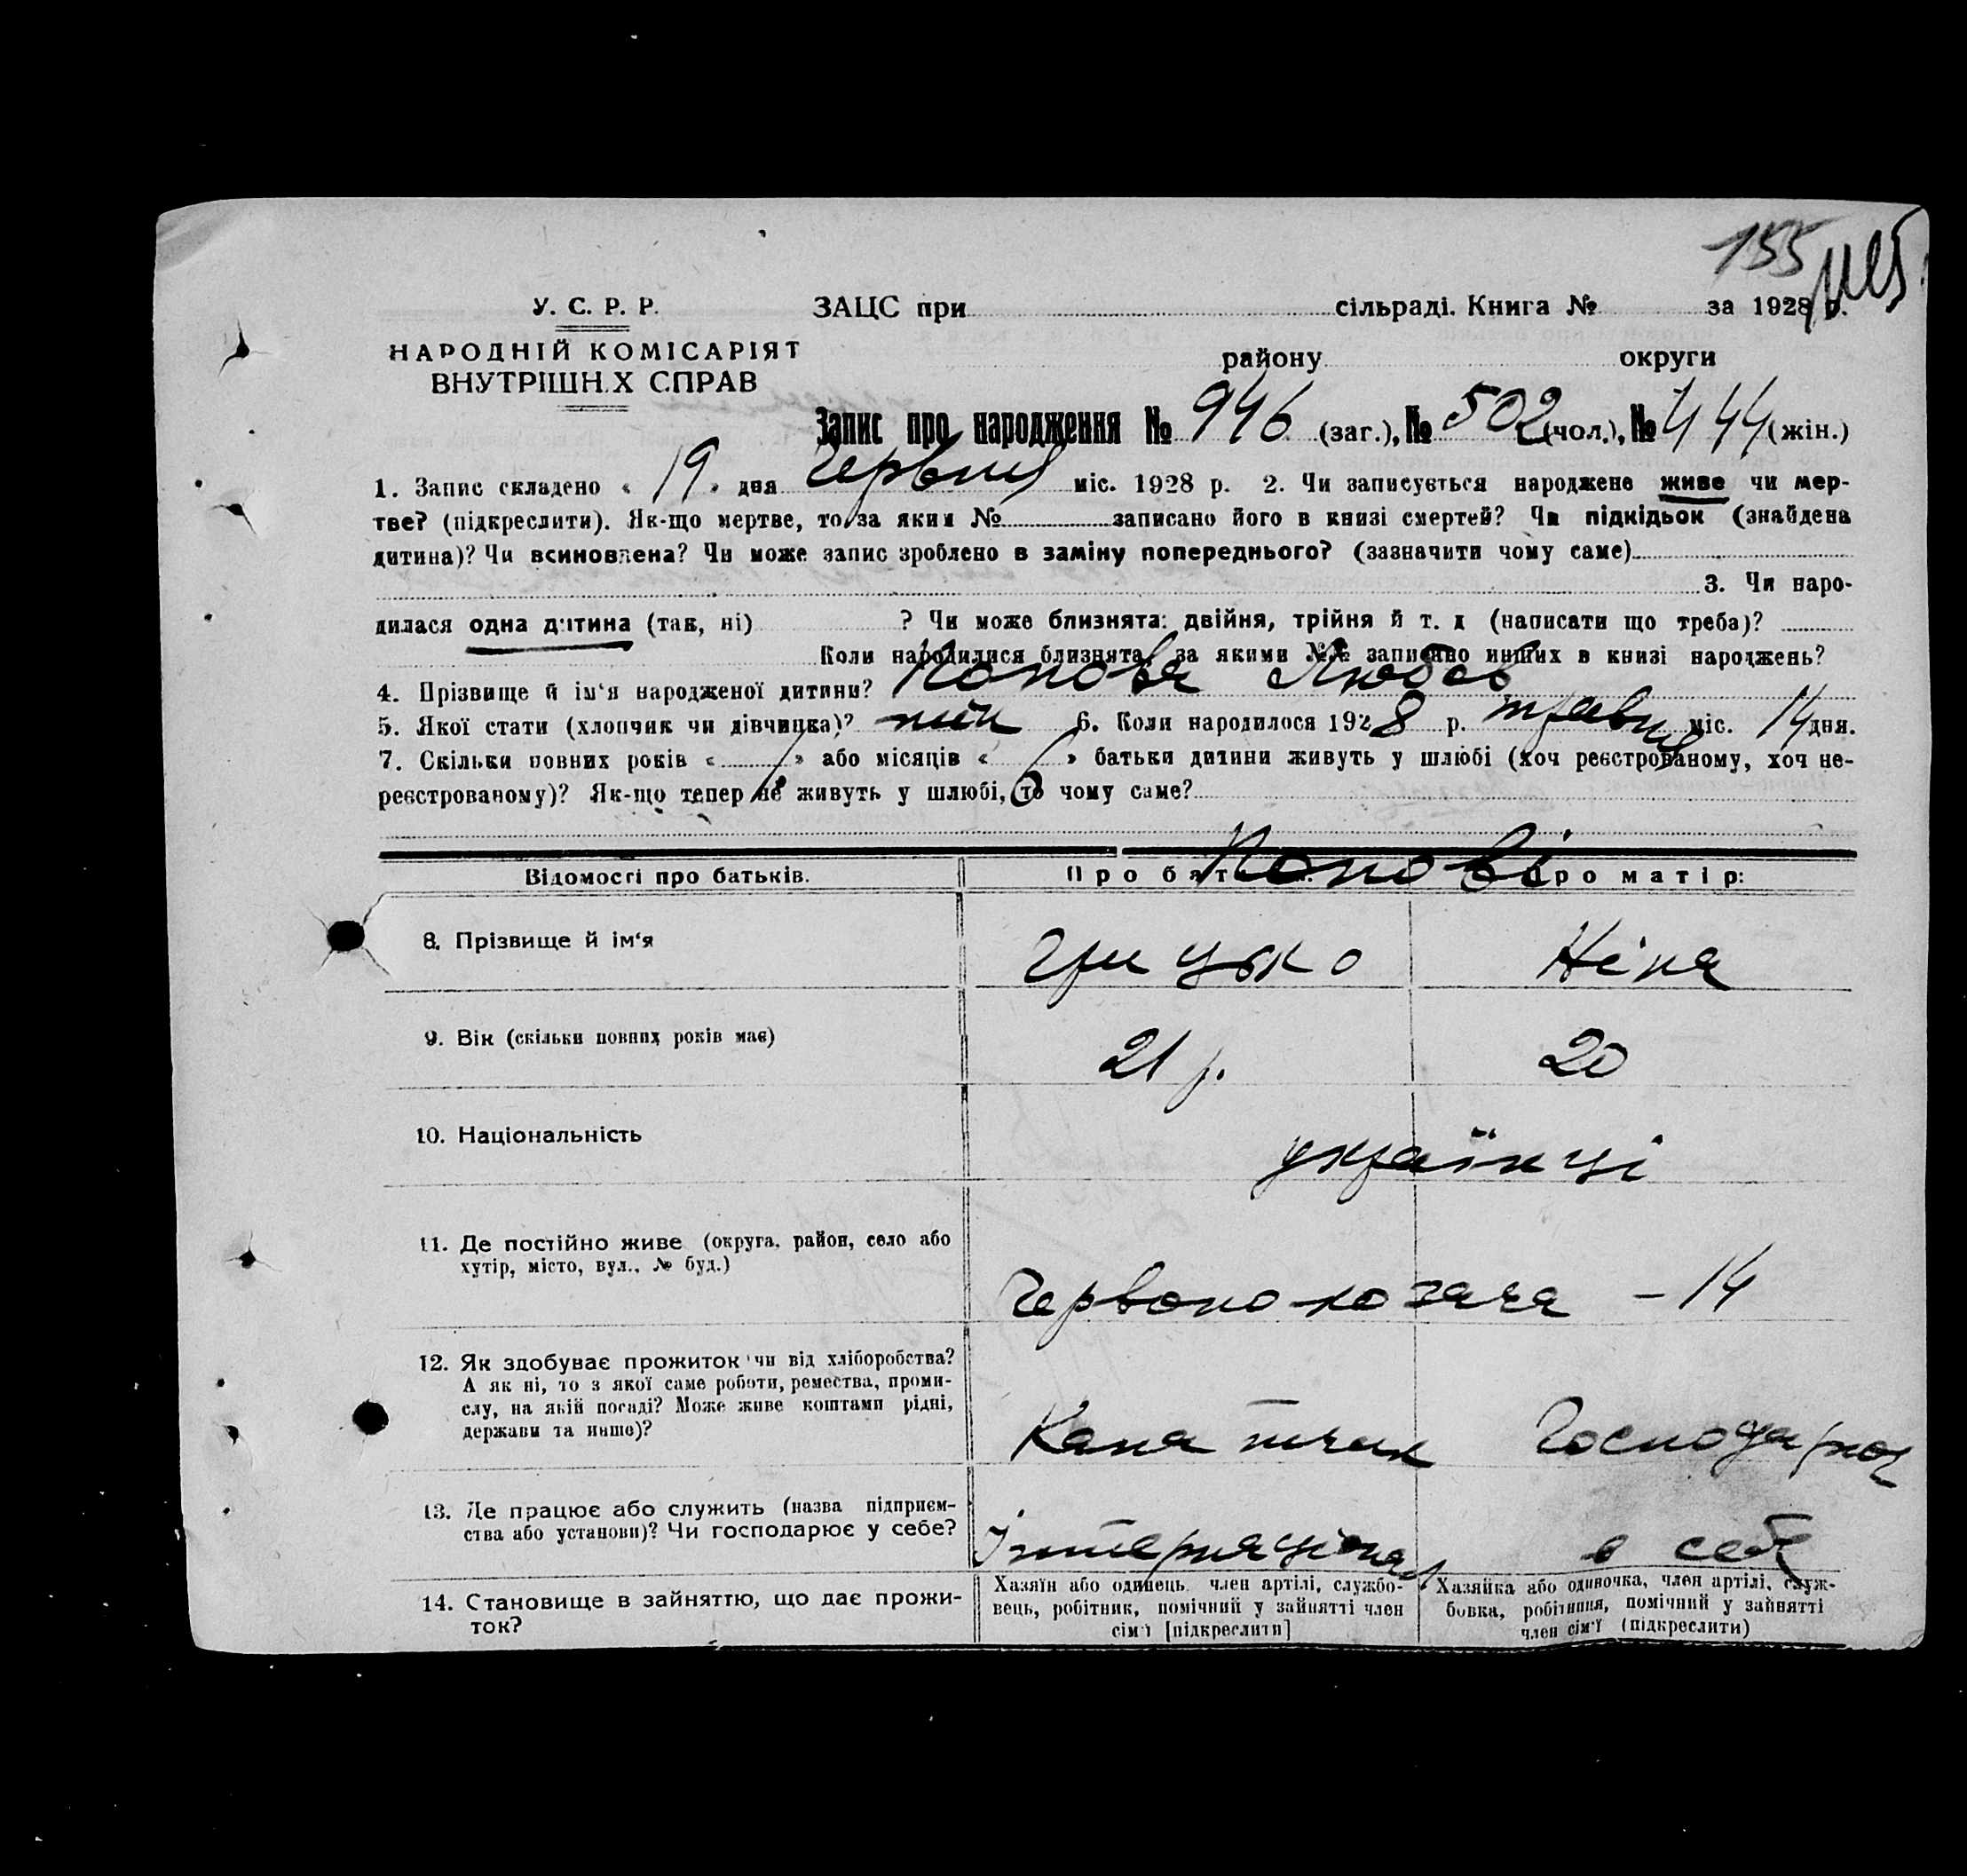 155
У. С. Р. Р.
ЗАЦС при сільраді. Книга № за 1928 р.
НАРОДНІЙ КОМІСАРІЯТ
ВНУТРІШН.Х СПРАВ
району округи
Запис про народження № 946 (заг.), № 502 (чол.), № 444 (жін.)
1. Запис складено « 19 » дня Червня міс. 1928 р. 2. Чи записується народжене живе чи мер-
тве? (підкреслити). Як-що мертве, то за яким № записано його в книзі смертей? Чи підкідьок (знайдена
дитина)? Чи всиновлена? Чи може запис зроблено в заміну попереднього? (зазначити чому саме)
3. Чи наро-
дилася одна дитина (так, ні) ? Чи може близнята: двійня, трійня й т. д (написати що треба)?
Коли народилися близнята, за якими №№ записано инших в книзі народжень?
4. Прізвище й ім'я народженої дитини? Попова Любов
5. Якої стати (хлопчик чи дівчинка)? жін 6. Коли народилося 1928 р. травня міс. 14 дня.
7. Скільки повних років « 1 » або місяців « 6 » батьки дитини живуть у шлюбі (хоч реєстрованому, хоч не-
реєстрованому)? Як-що тепер не живуть у шлюбі, то чому саме?
Попови
Відомості про батьків. Про батька: Про матір:
8. Прізвище й ім'я Грицько Ніна
9. Вік (скільки повних років має) 21 р. 20
10. Національність українці
11. Де постійно живе (округа, район, село або
хутір, місто, вул., № буд.)
Червоно-козача - 14
12. Як здобуває прожиток чи від хліборобства?
А як ні, то з якої саме роботи, ремества, проми-
слу, на якій посаді? Може живе коштами рідні,
держави та инше)?
Канатчик Господарює
13. Де працює або служить (назва підприєм-
ства або установи)? Чи господарює у себе?
Інтернаціонал в себе
14. Становище в зайняттю, що дає прожи-
ток?
Хазяїн або одинець, член артілі, службо-
вець, робітник, помічний у зайнятті член
сім'ї [підкреслити]
Хазяйка або одиночка, член артілі, служ-
бовка, робітниця, помічний у зайнятті
член сім'ї (підкреслити)